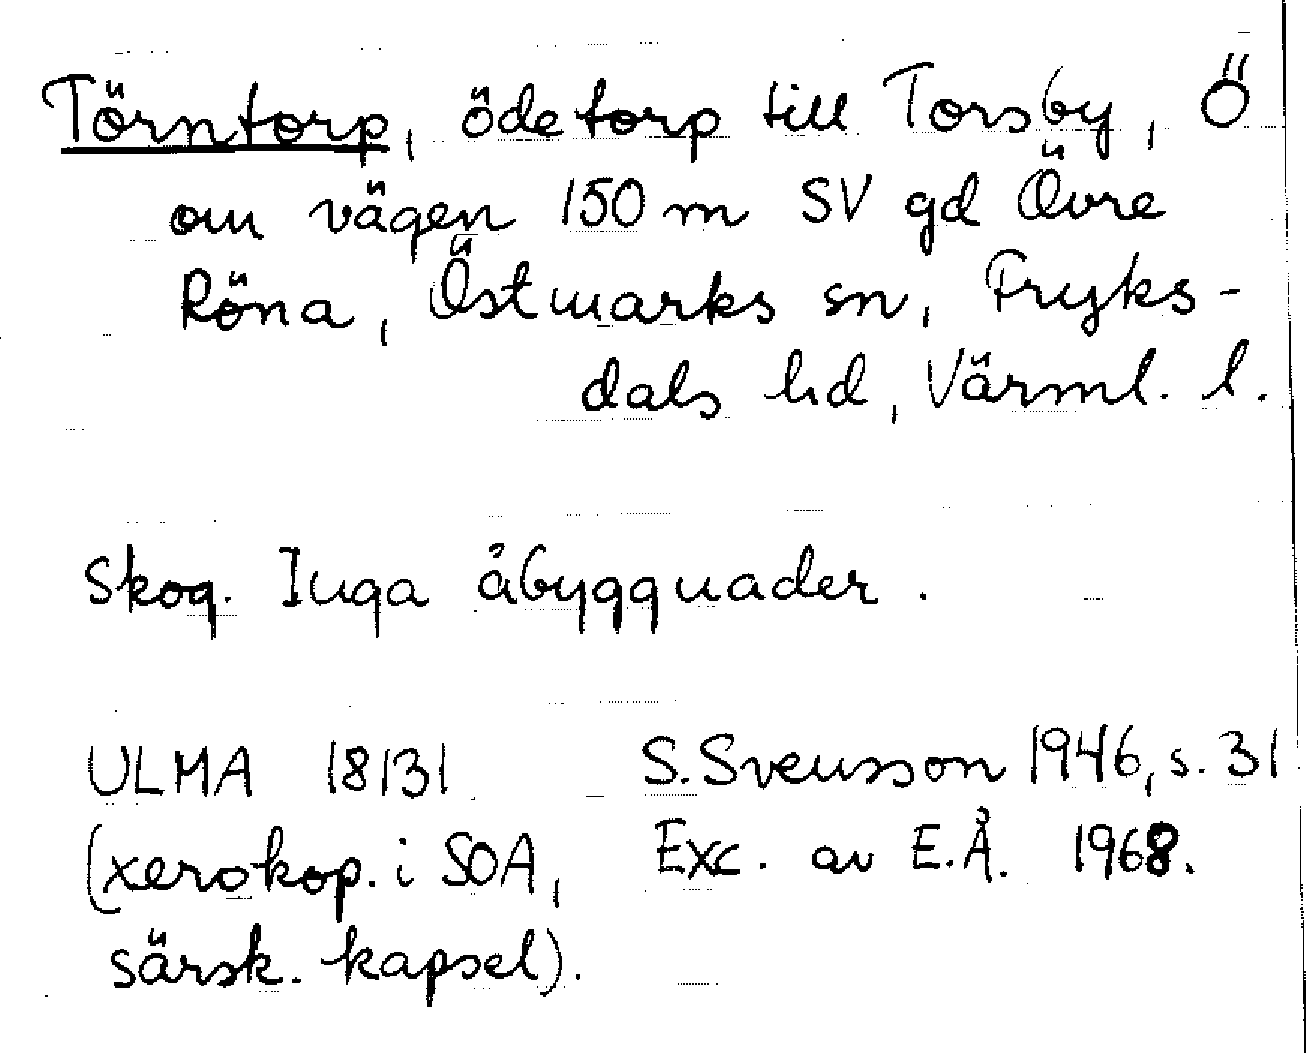 Törntorp, ödetorp till Torsby, Ö
om vägen 150 m SV gd Övre
Röna, Östmarks sn, Fryks-
dals hd, Värml. l.
Skog. Inga åbyggnader.
ULMA 18131 S. Svensson 1946, s. 31
(xerokop. i SOA, Exc. av E.Å. 1968.
särsk. kapsel).